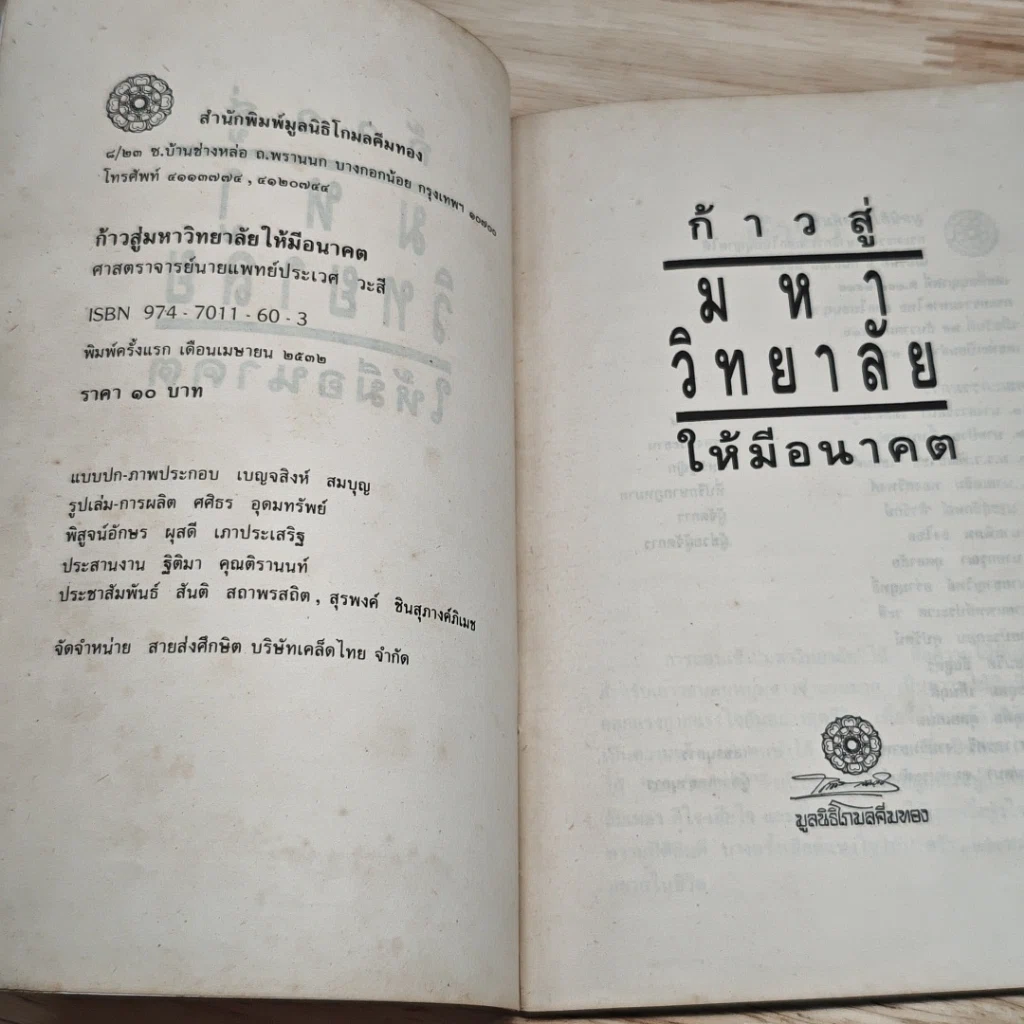 สำนักพิมพ์มูลนิธิโกมลคีมทอง
๘/๒๓ ซ.บ้านช่างหล่อ ถ.พรานนก บางกอกน้อย กรุงเทพฯ ๑๐๗๐๐
โทรศัพท์ ๔๑๑๓๗๗๔ , ๔๑๒๐๗๔๔
ก้าวสู่มหาวิทยาลัยให้มีอนาคต
ศาสตราจารย์นายแพทย์ประเวศ วะสี
ISBN 974 - 7011 - 60 - 3
พิมพ์ครั้งแรก เดือนเมษายน ๒๕๓๒
ราคา ๑๐ บาท
แบบปก-ภาพประกอบ เบญจสิงห์ สมบุญ
รูปเล่ม-การผลิต ศศิธร อุดมทรัพย์
พิสูจน์อักษร ผุสดี เภาประเสริฐ
ประสานงาน ฐิติมา คุณติรานนท์
ประชาสัมพันธ์ สันติ สถาพรสถิต , สุรพงค์ ชินสุภางค์ภิเมช
จัดจำหน่าย สายส่งศึกษิต บริษัทเคล็ดไทย จำกัด
ก้าวสู่
มหา
วิทยาลัย
ให้มีอนาคต
มูลนิธิโกมลคีมทอง